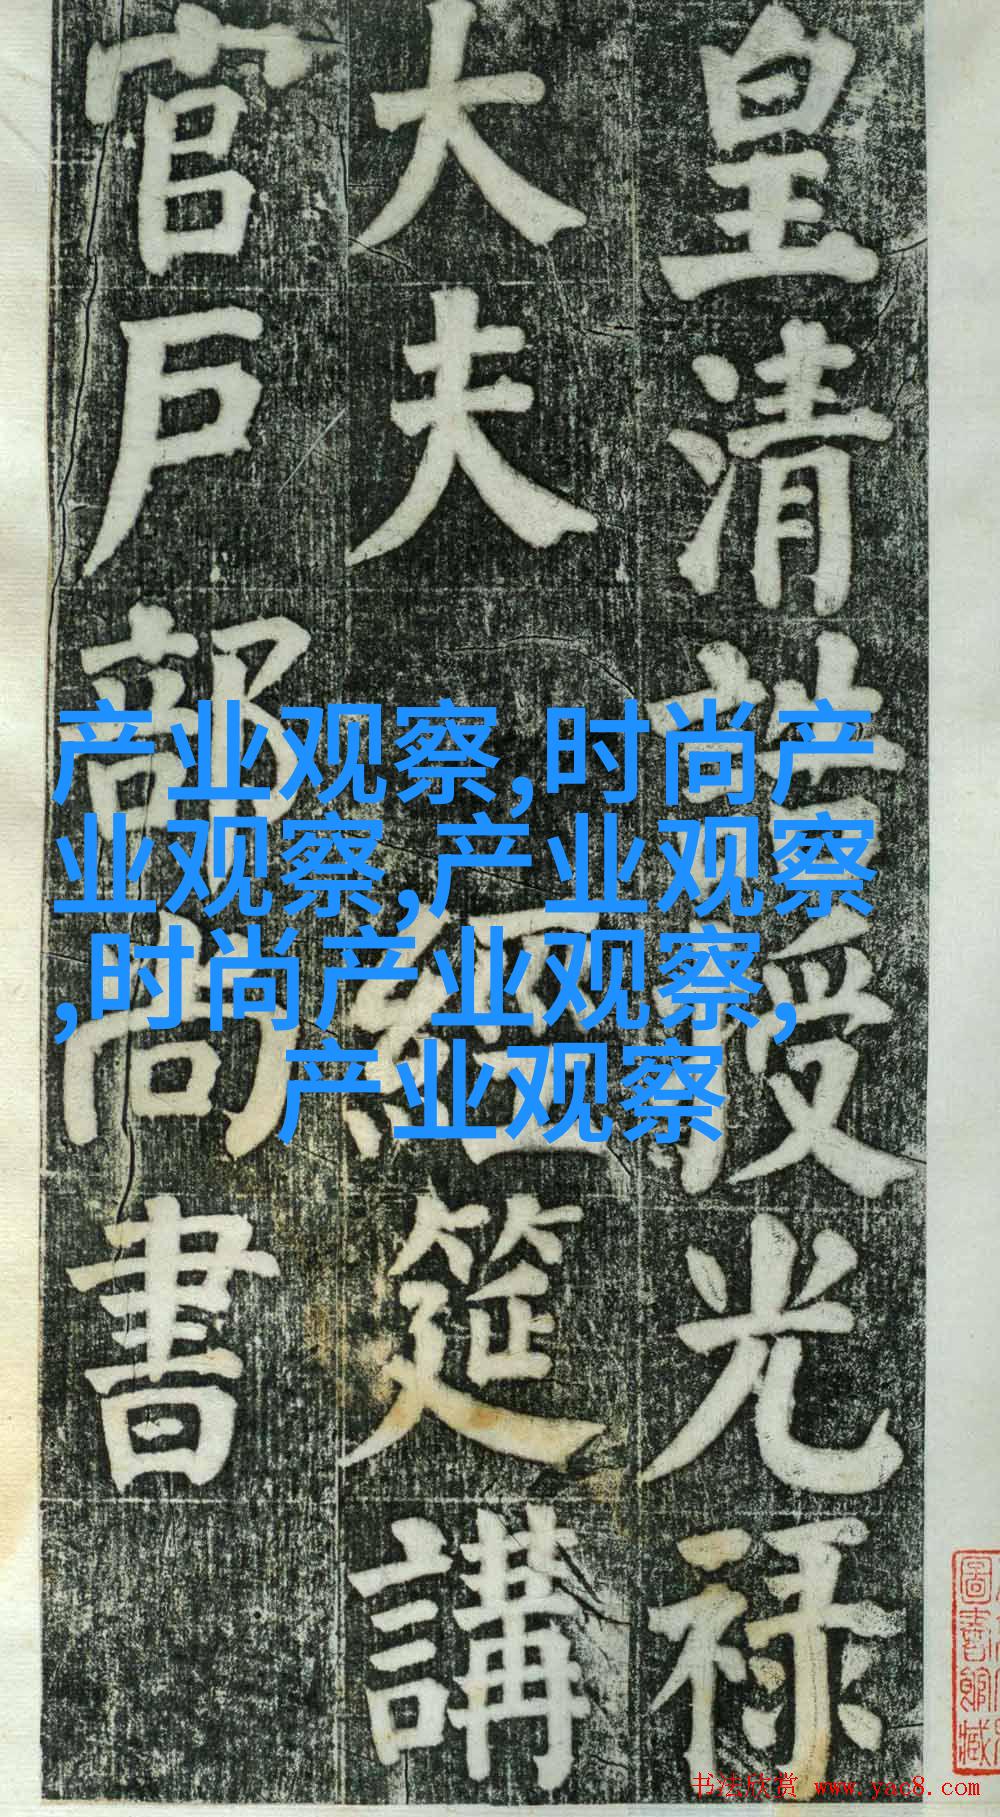 皇清授光禄
大夫經筵講
官戶部尚書
产业观察,时尚产
业观察,产业观察
,时尚产业观察,
产业观察
圖書館藏
书法欣赏 www.yac8.com